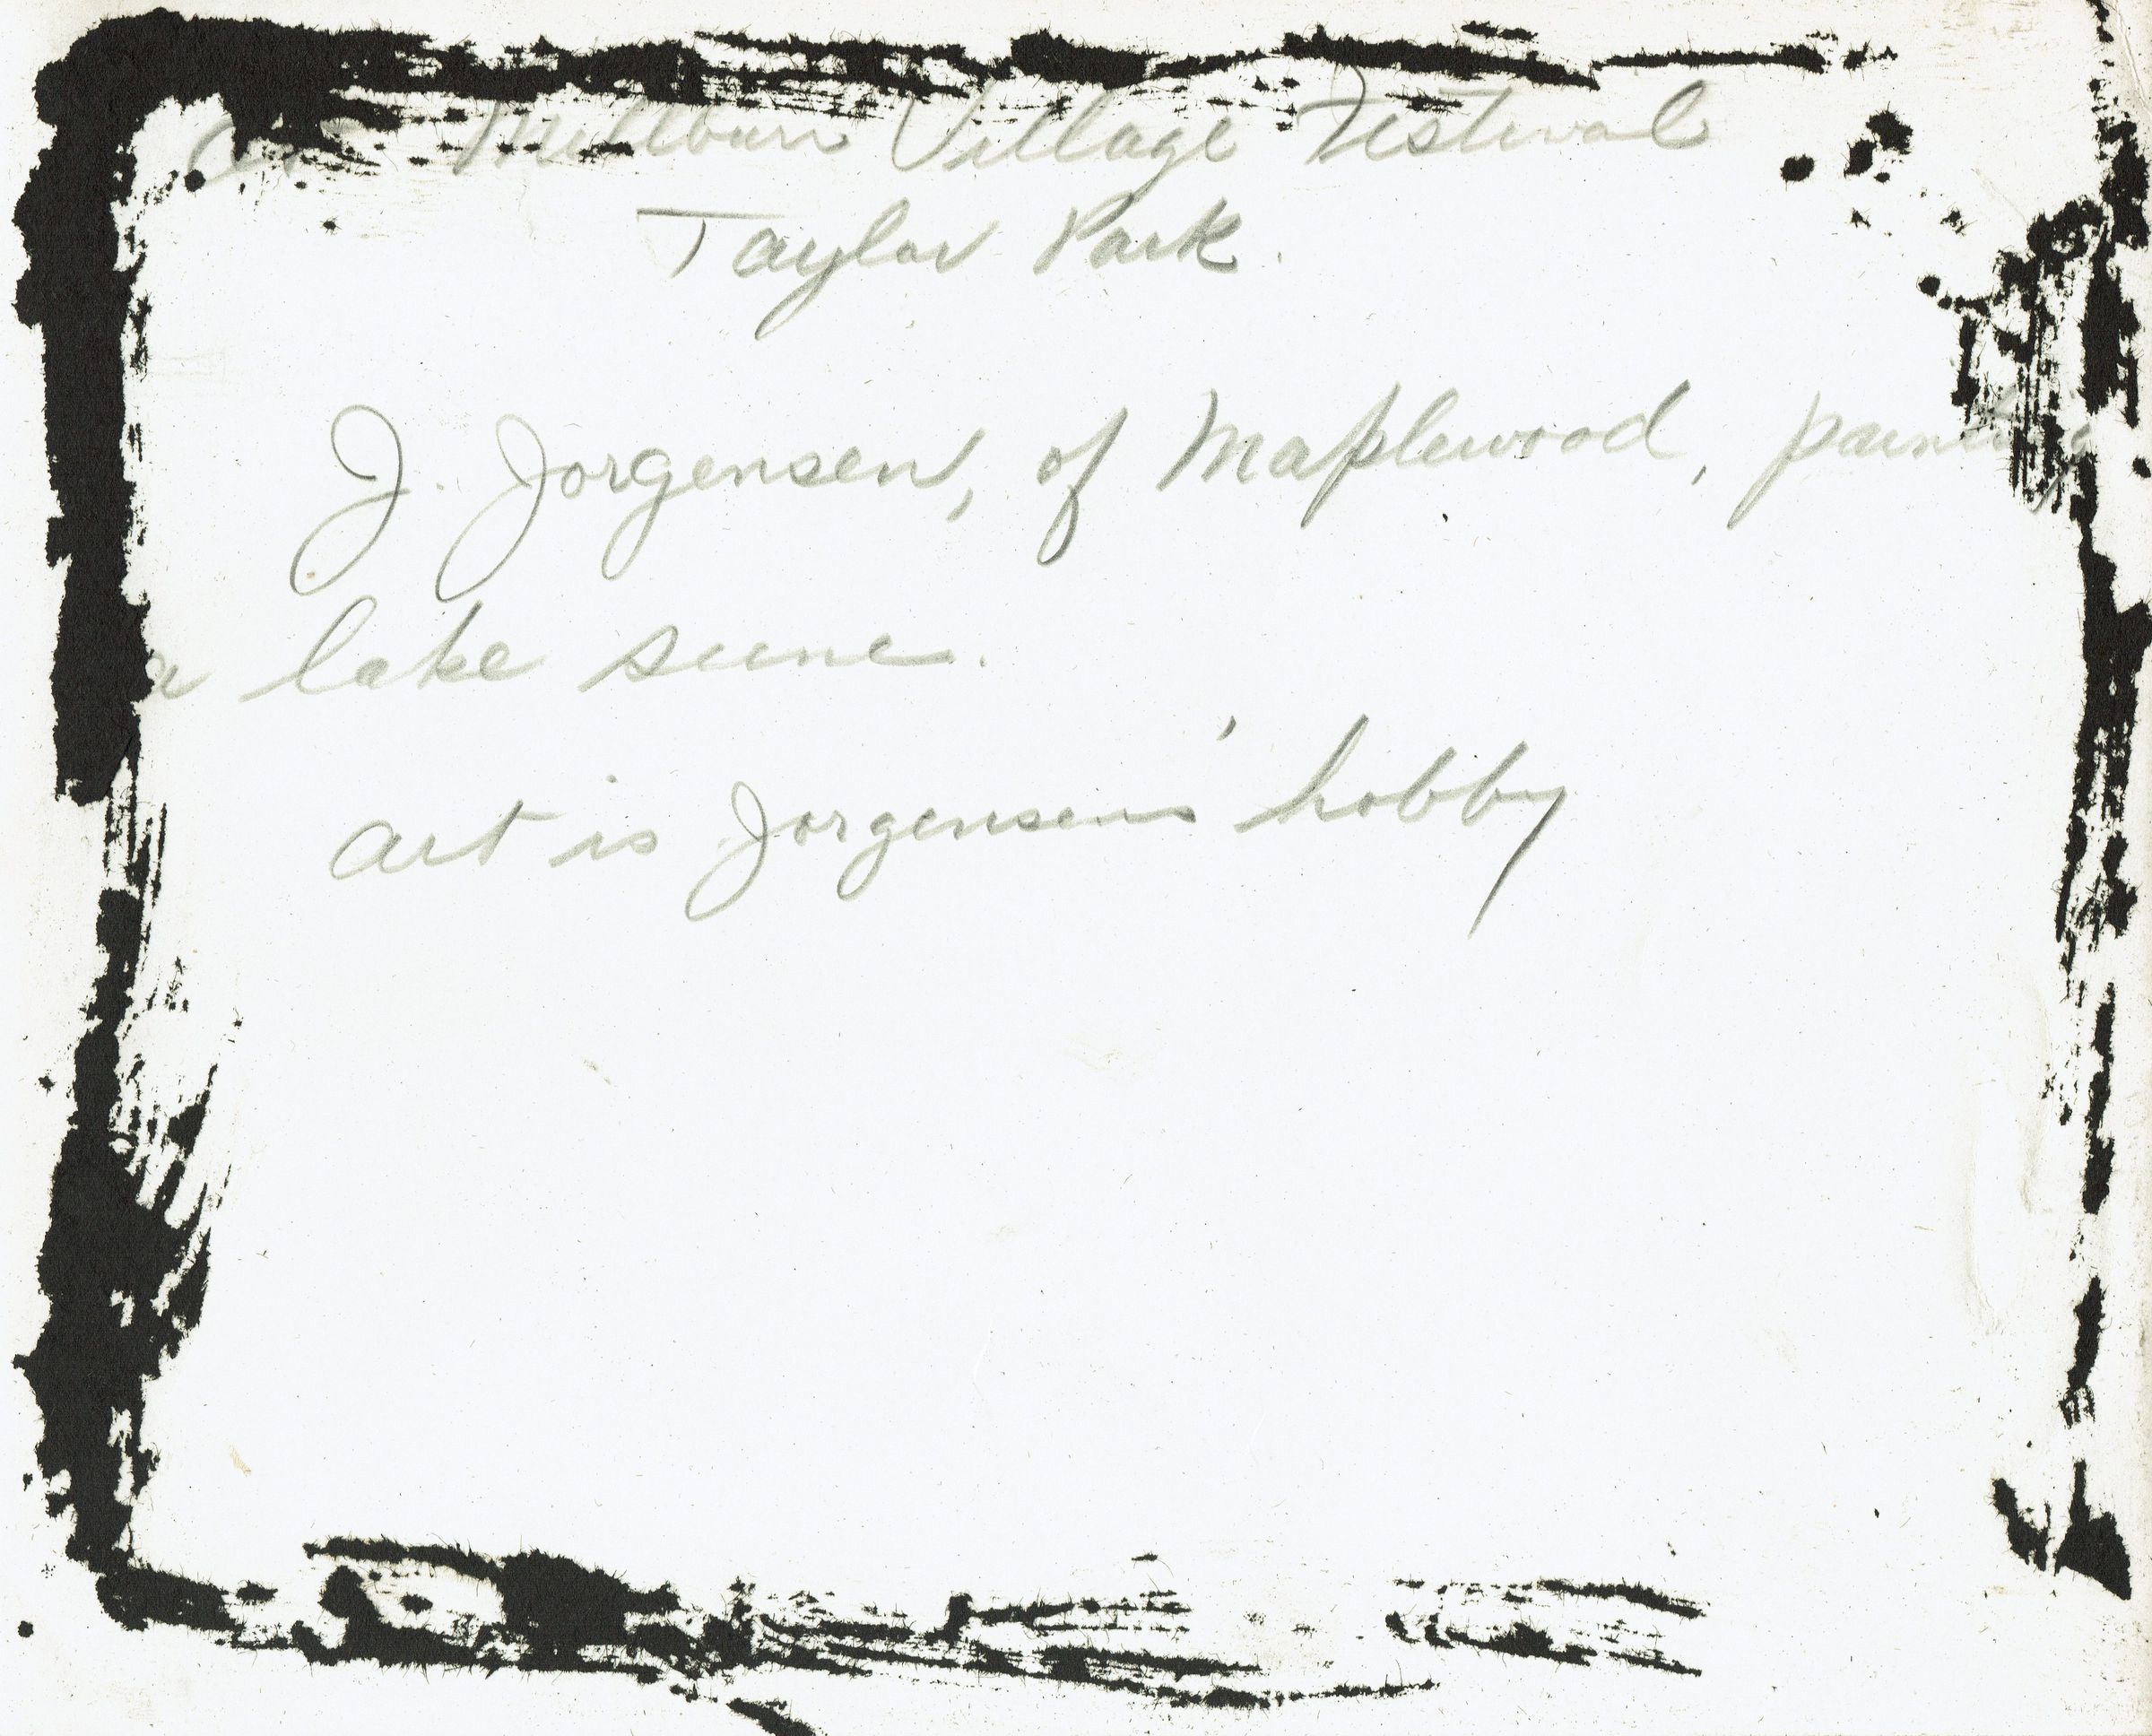 Millburn Village Festival
Taylor Park.
J. Jorgensen, of Maplewood,
a lake scene.
art is Jorgensens' hobby